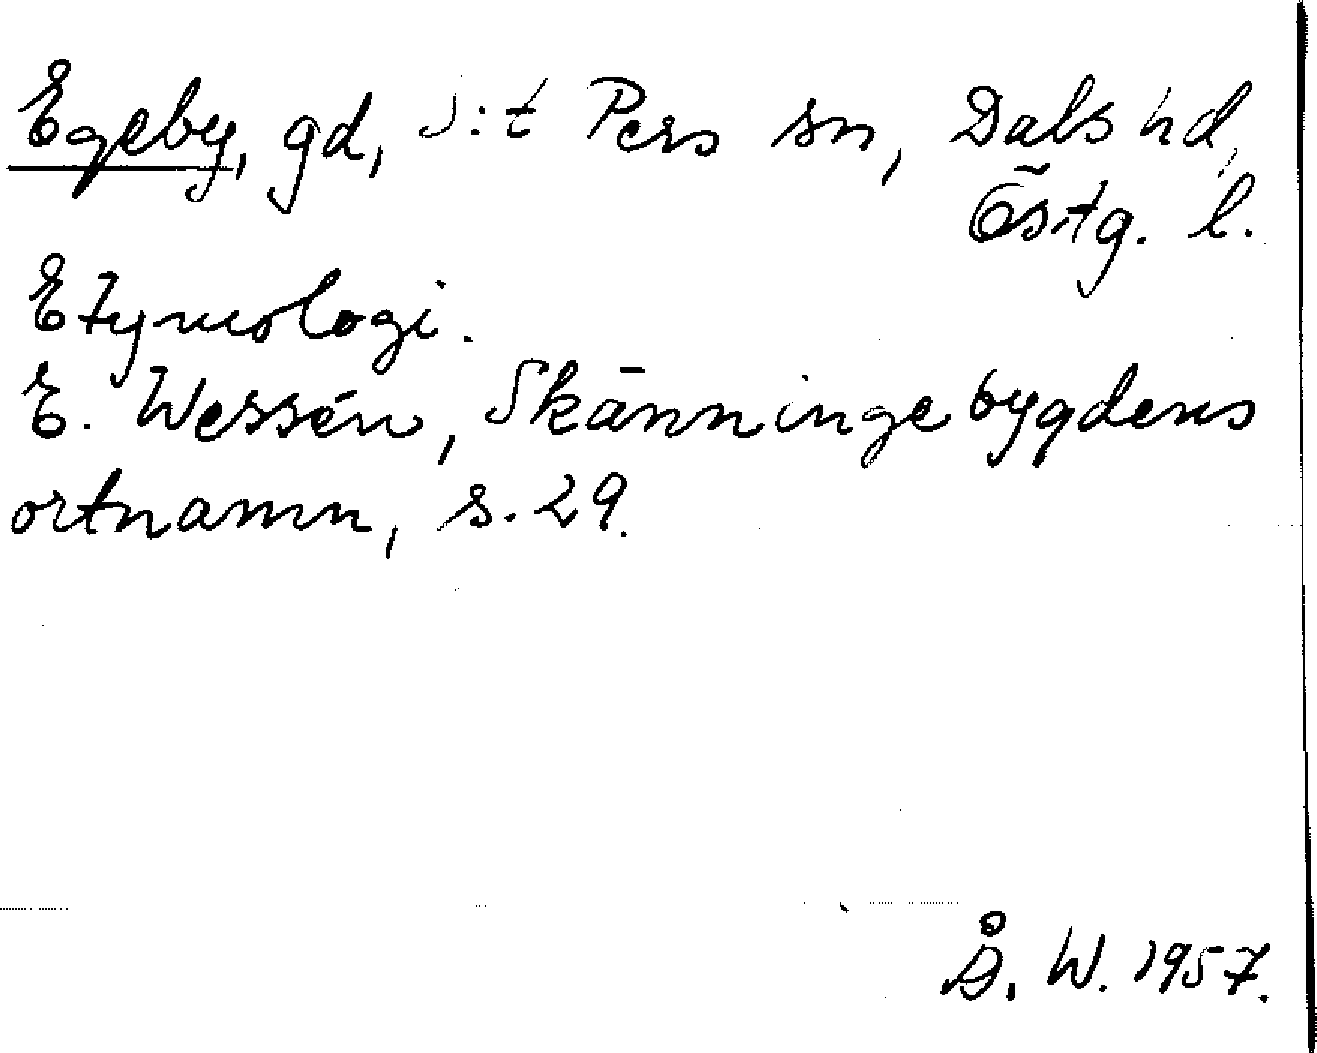 Egeby, gd, S:t Pers sn, Dals hd,
Östg. l.
Etymologi.
E. Wessén, Skänningebygdens
ortnamn, s. 29.
Å. W. 1957.